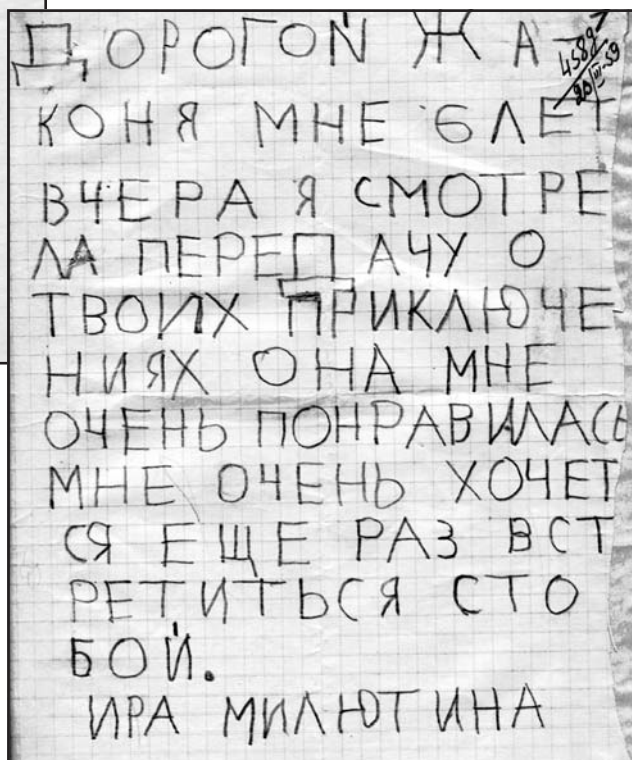 ДОРОГОЙ ЖА
КОНЯ МНЕ 6 ЛЕТ
ВЧЕРА Я СМОТРЕ
ЛА ПЕРЕДАЧУ О
ТВОИХ ПРИКЛЮЧЕ
НИЯХ ОНА МНЕ
ОЧЕНЬ ПОНРАВИЛАСЬ
МНЕ ОЧЕНЬ ХОЧЕТ
СЯ ЕЩЕ РАЗ ВСТ
РЕТИТЬСЯ СТО
БОЙ.
ИРА МИЛЮТИНА